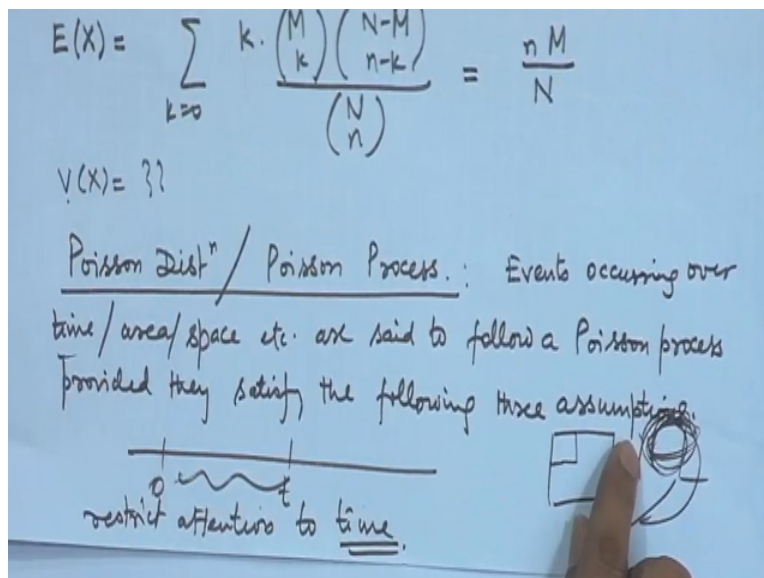 E(X) = ∑ k=0 k · (M k) (N-M n-k) / (N n) = nM / N
V(X) = ??
Poisson Distⁿ / Poisson Process. : Events occurring over
time / area / space etc. are said to follow a Poisson process
provided they satisfy the following three assumptions.
0 t
restrict attention to time.